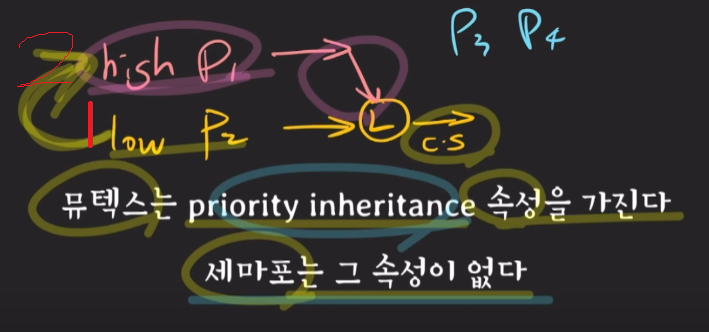 P3 P4
2 high P1
1 low P2 L
C.S
뮤텍스는 priority inheritance 속성을 가진다
세마포는 그 속성이 없다